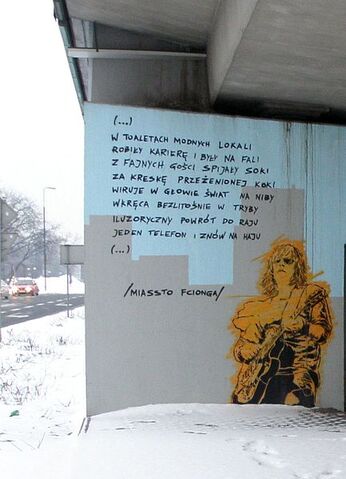 (...)
W TOALETACH MODNYCH LOKALI
ROBIŁY KARIERĘ I BYŁY NA FALI
Z FAJNYCH GOŚCI SPIJAŁY SOKI
ZA KRESKĘ PRZEŻENIONEJ KOKI
WIRUJE W GŁOWIE ŚWIAT NA NIBY
WKRĘCA BEZLITOŚNIE W TRYBY
ILUZORYCZNY POWRÓT DO RAJU
JEDEN TELEFON I ZNÓW NA HAJU
(...)
/MIASSTO FCIONGA/